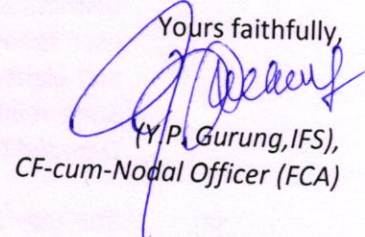 Yours faithfully,
(Y.P. Gurung,IFS),
CF-cum-Nodal Officer (FCA)